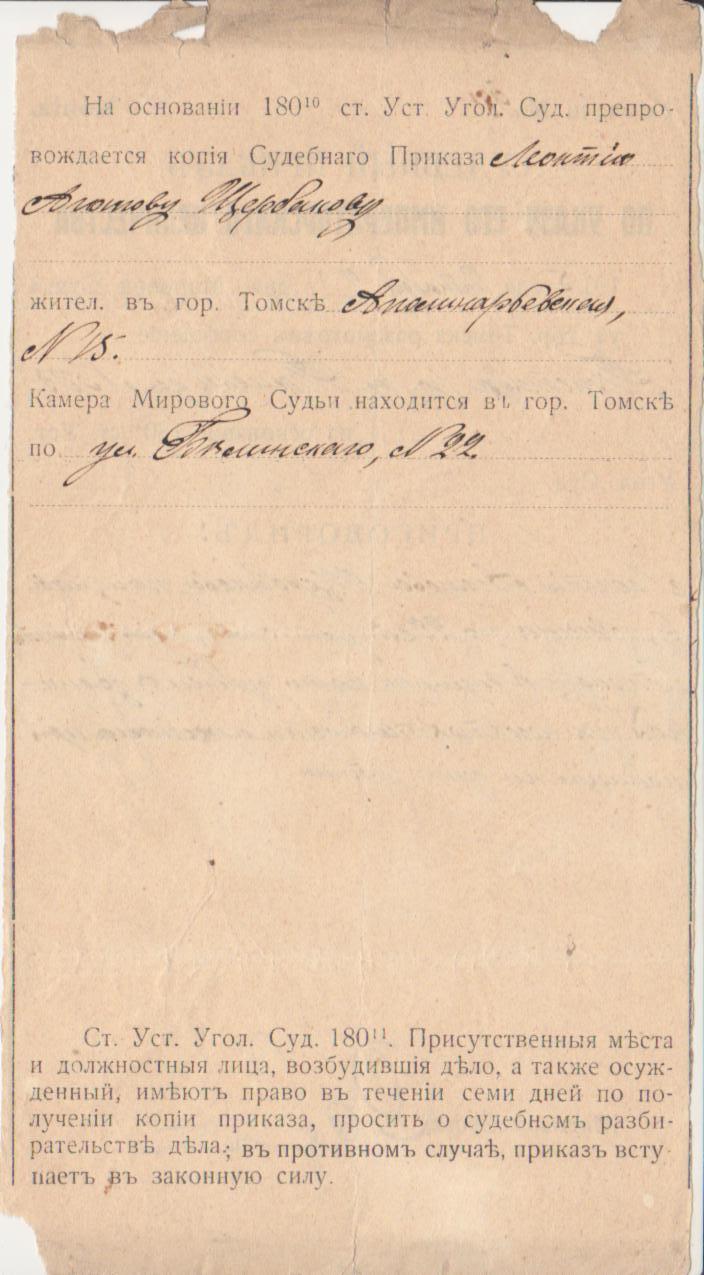 На основаніи 180¹⁰ ст. Уст. Угол. Суд. препро-
вождается копія Судебнаго Приказа Леонтію
Агютову Щербакову
жител. въ гор. Томскѣ Аполинарьевская,
N 15.
Камера Мирового Судьи находится въ гор. Томскѣ
по ул. Бѣлинскаго, N 22.
Ст. Уст. Угол. Суд. 180¹¹. Присутственныя мѣста
и должностныя лица, возбудившія дѣло, а также осуж-
денный, имѣютъ право въ теченіи семи дней по по-
лученіи копіи приказа, просить о судебномъ разби-
рательствѣ дѣла; въ противномъ случаѣ, приказъ всту-
паетъ въ законную силу.